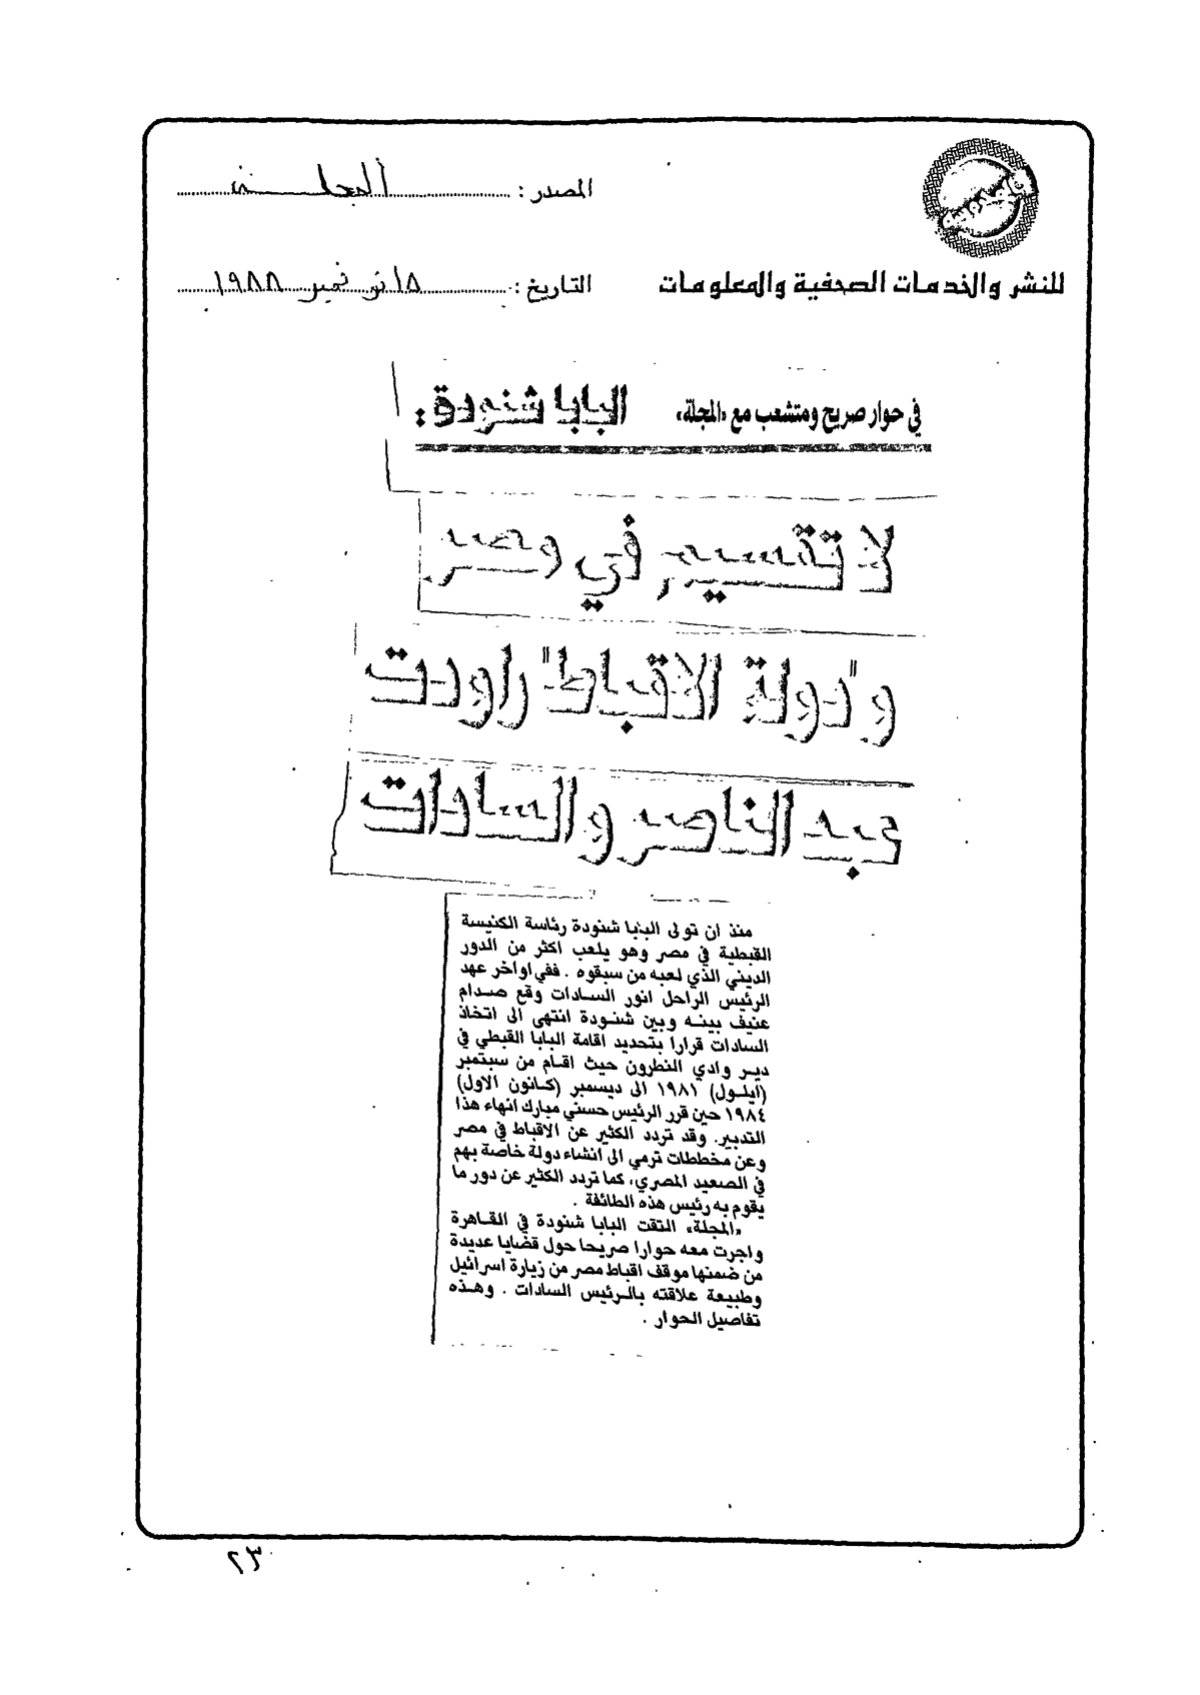 المصدر : المجلة
للنشر والخدمات الصحفية والمعلومات
التاريخ : ١٥ نوفمبر ١٩٨٨
في حوار صريح ومتشعب مع «المجلة»
البابا شنودة :
لا تقسيم في مصر
و"دولة الاقباط" راودت
عبد الناصر والسادات
منذ ان تولى البابا شنودة رئاسة الكنيسة
القبطية في مصر وهو يلعب اكثر من الدور
الديني الذي لعبه من سبقوه . ففي اواخر عهد
الرئيس الراحل انور السادات وقع صدام
عنيف بينه وبين شنودة انتهى الى اتخاذ
السادات قرارا بتحديد اقامة البابا القبطي في
دير وادي النطرون حيث اقام من سبتمبر
(ايلول) ١٩٨١ الى ديسمبر (كانون الاول)
١٩٨٤ حين قرر الرئيس حسني مبارك انهاء هذا
التدبير. وقد تردد الكثير عن الاقباط في مصر
وعن مخططات ترمي الى انشاء دولة خاصة بهم
في الصعيد المصري، كما تردد الكثير عن دور ما
يقوم به رئيس هذه الطائفة .
«المجلة» التقت البابا شنودة في القاهرة
واجرت معه حوارا صريحا حول قضايا عديدة
من ضمنها موقف اقباط مصر من زيارة اسرائيل
وطبيعة علاقته بالرئيس السادات . وهذه
تفاصيل الحوار .
٢٣